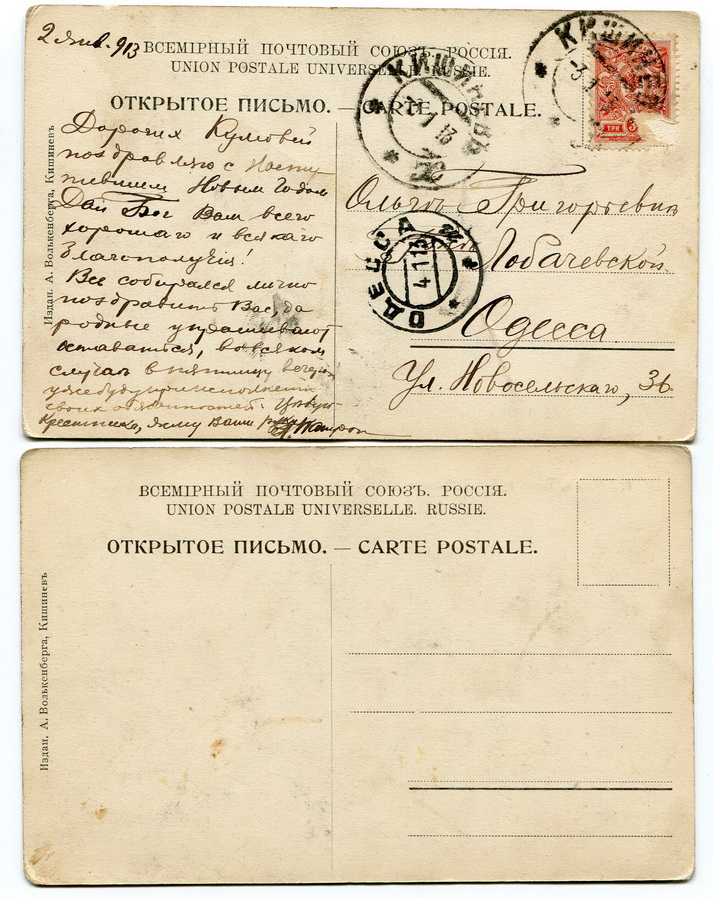 2 Янв. 913
ВСЕМІРНЫЙ ПОЧТОВЫЙ СОЮЗЪ. РОССІЯ.
UNION POSTALE UNIVERSELLE. RUSSIE.
ОТКРЫТОЕ ПИСЬМО. — CARTE POSTALE.
Издан. А. Волькенберга, Кишиневъ
КИШИНЕВЪ
КИШИНЕВЪ
ТРИ 3
Дорогих Кумовей
поздравляю с Насту
пившим Новым Годом
Дай Бог Вам всего
хорошаго и всякаго
благополучія!
Все собирался лично
поздравить Вас, да
родные упрашивают
оставаться, во всяком
случаѣ в пятницу вечером
уже буду при исполненіи
своих обязанностей. Цѣлую
Крестника, жму Ваши руки
Ольгѣ Григорьевнѣ
Лобачевской
ОДЕССА
4 1 13
Одесса
Ул. Новосельскаго,
ВСЕМІРНЫЙ ПОЧТОВЫЙ СОЮЗЪ. РОССІЯ.
UNION POSTALE UNIVERSELLE. RUSSIE.
ОТКРЫТОЕ ПИСЬМО. — CARTE POSTALE.
Издан. А. Волькенберга, Кишиневъ